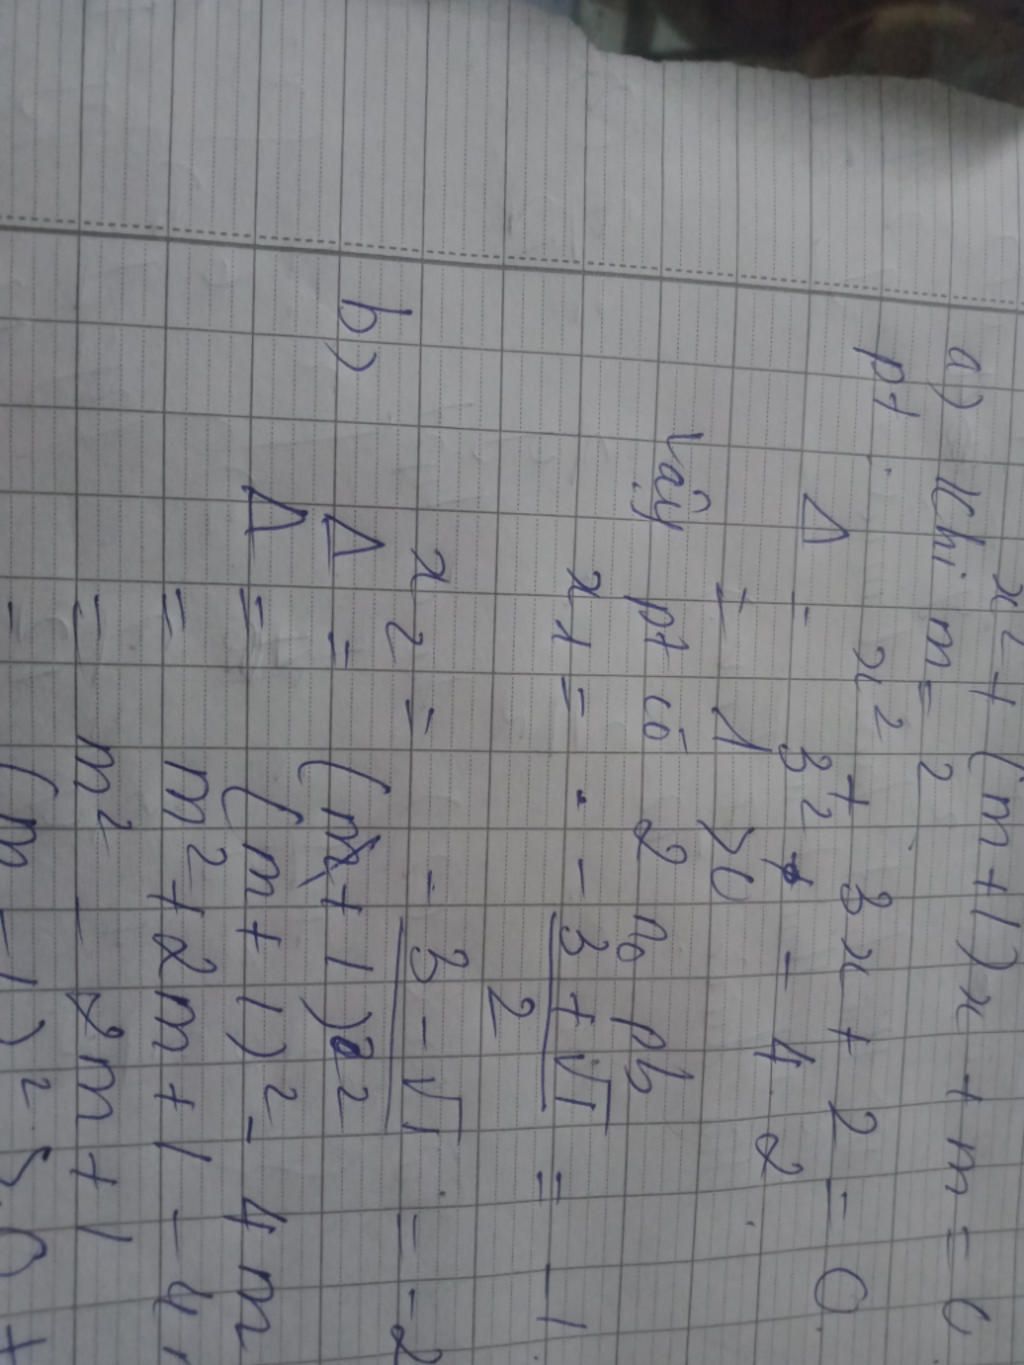 x² + (m+1)x + m = 0
a) Khi m = 2
pt : x² + 3x + 2 = 0
Δ = 3² - 4 . 2
= 1 > 0
Vậy pt có 2 no pb
x1 = - 3 + √1 / 2 = - 1
x2 = - 3 - √1 = - 2
b) Δ = (m + 1)²
Δ = (m + 1)² - 4m
= m² + 2m + 1 - 4m
= m² - 2m + 1
= (m - 1)² ≥ 0